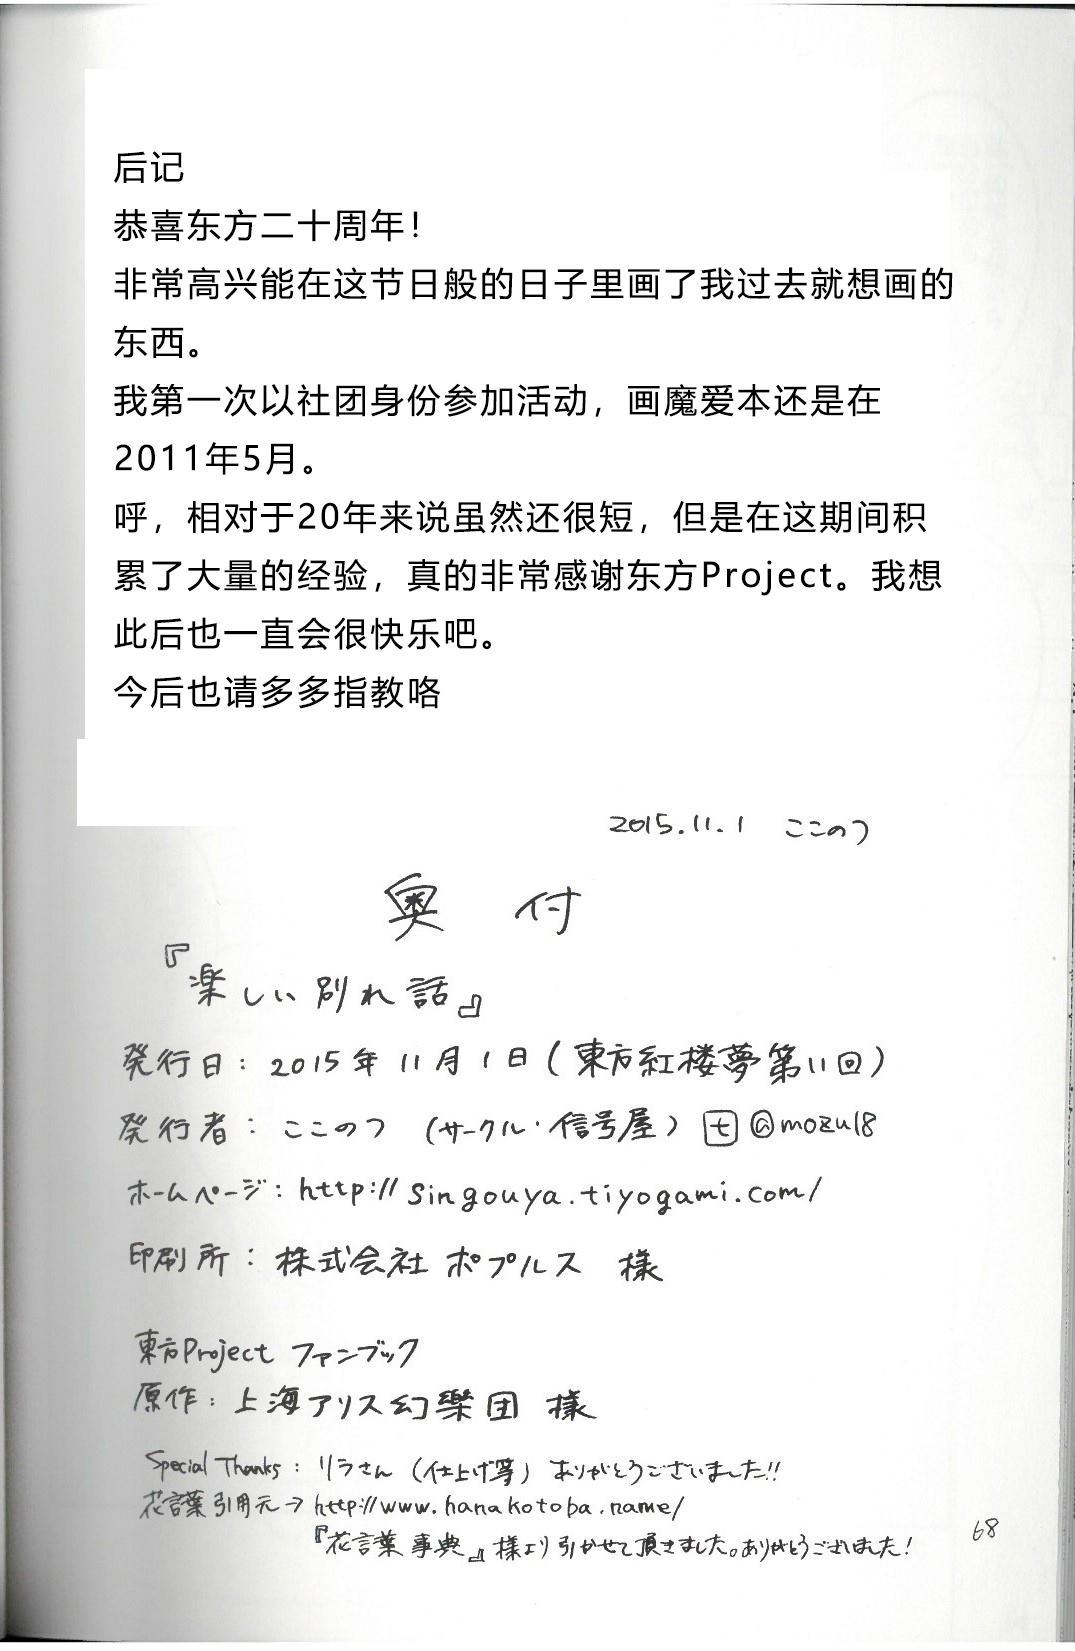 后记
恭喜东方二十周年！
非常高兴能在这节日般的日子里画了我过去就想画的
东西。
我第一次以社团身份参加活动，画魔爱本还是在
2011年5月。
呼，相对于20年来说虽然还很短，但是在这期间积
累了大量的经验，真的非常感谢东方Project。我想
此后也一直会很快乐吧。
今后也请多多指教咯
2015.11.1 ここのつ
奥付
『楽しい別れ話』
発行日：2015年11月1日（東方紅楼夢第11回）
発行者：ここのつ （サークル・信号屋） 七 @mozu18
ホームページ：http://singouya.tiyogami.com/
印刷所：株式会社 ポプルス 様
東方Project ファンブック
原作：上海アリス幻樂団 様
Special Thanks：リラさん（仕上げ等）ありがとうございました!!
花言葉引用元→http://www.hanakotoba.name/
『花言葉事典』様より引かせて頂きました。ありがとうございました！
68